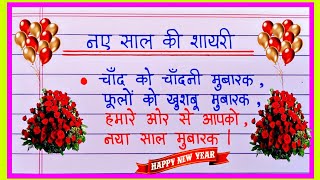 नए साल की शायरी
चाँद को चाँदनी मुबारक,
फूलों को खुशबू मुबारक,
हमारे ओर से आपको,
नया साल मुबारक।
HAPPY NEW YEAR